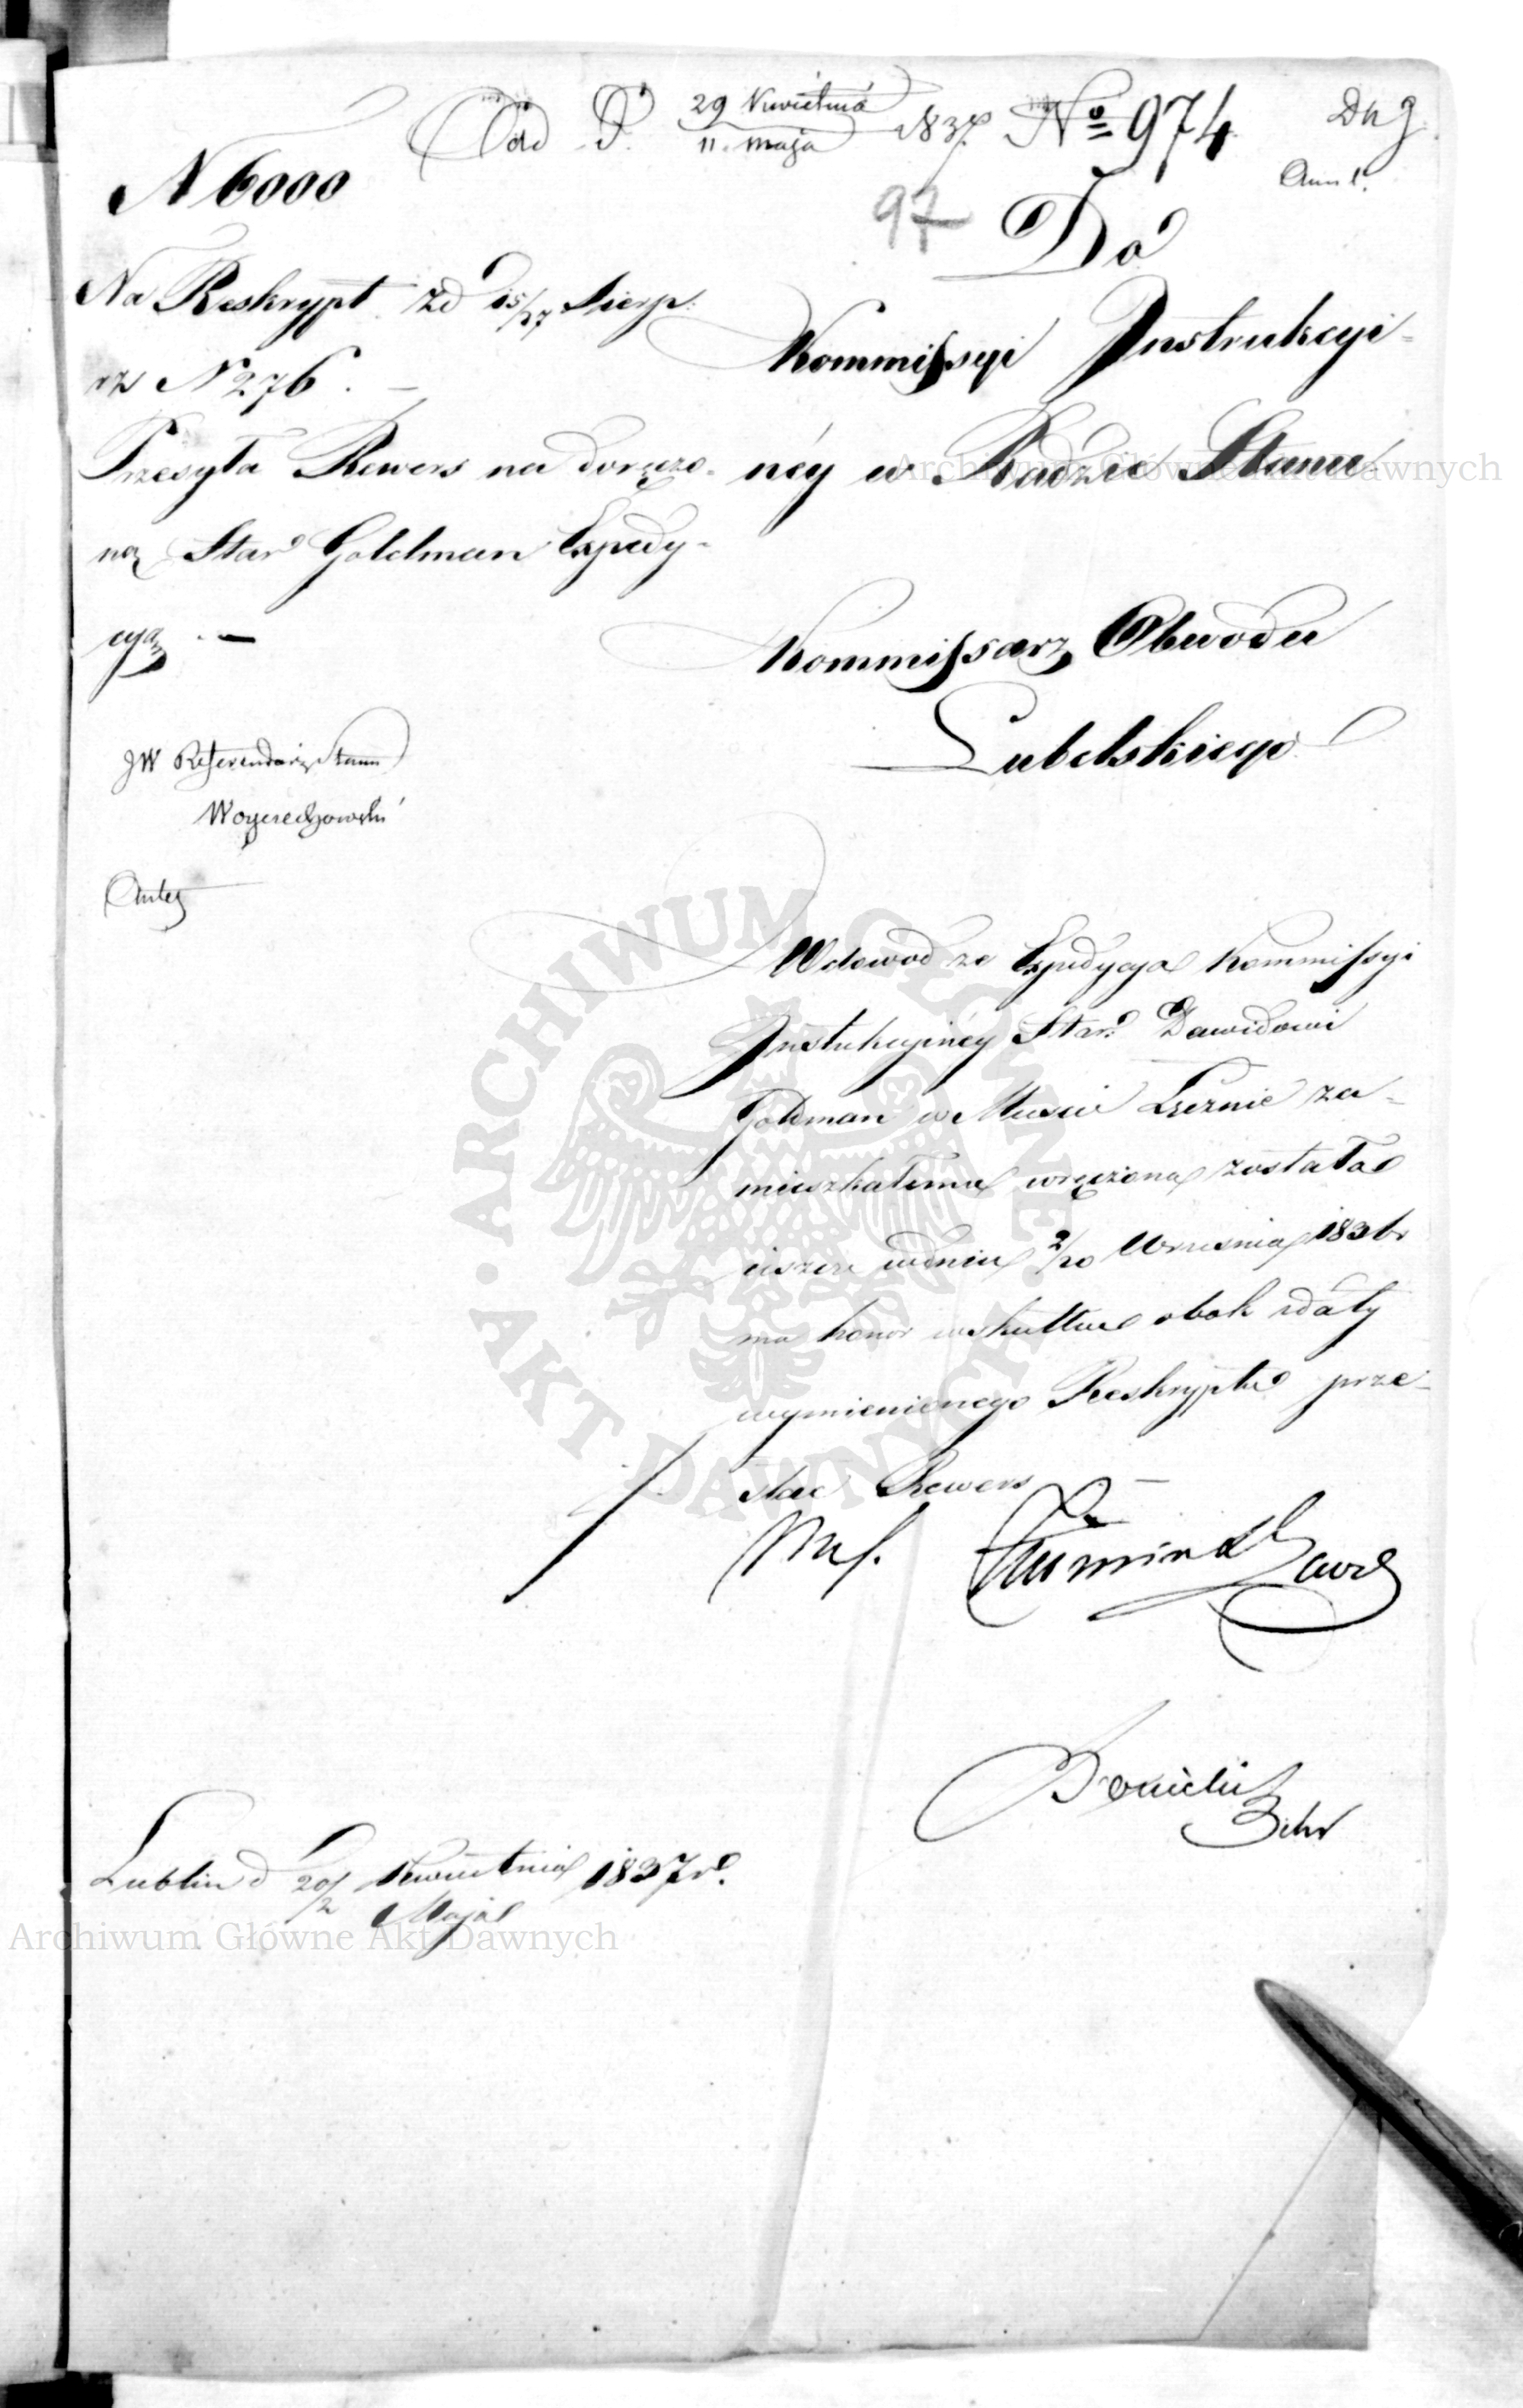 Od D. 29 Kwietnia / 11 Maja 1837 № 974
N 6000
97
Do
Na Reskrypt z d 15/27 Sierp:
rz N 276. —
Kommissyi Instrukcyi-
Przesyła Rewers na doręczo-
néy w Radzie Stanu
ną Star Goldman Expedy-
cyą. —
Kommissarz Obwodu
Lubelskiego
JW Referendarz Stanu
Woyciechowski
W dowod ze Expedycya Kommissyi
Instukcyinéy Star: Dawidowi
Goldman w Miescie Łęcznie za-
mieszkałemu wręczona została
ieszcze w dniu 2/20 Wrzesnia 1836 r
ma honor w skutku obok z daty
wymienionego Reskryptu prze-
słac Rewers —
Lublin d 20/2 Kwietnia 1837 r.
Maja
Archiwum Główne Akt Dawnych
Archiwum Główne Akt Dawnych
ARCHIWUM GŁÓWNE • AKT DAWNYCH •